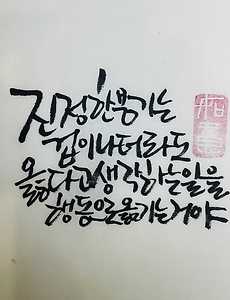 진정한 용기는
겁이 나더라도
옳다고 생각하는 일을
행동으로 옮기는 거야